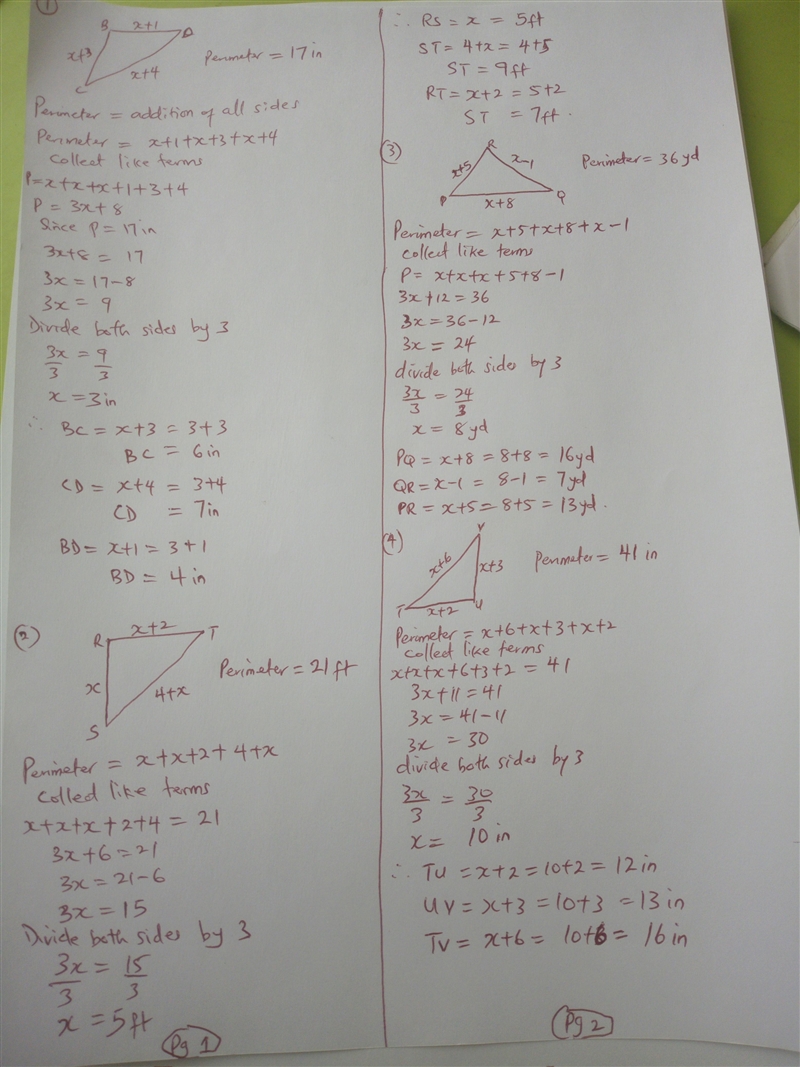 ①
B x+1 D
x+3
x+4
C
Perimeter = 17in
Perimeter = addition of all sides
Perimeter = x+1+x+3+x+4
Collect like terms
P=x+x+x+1+3+4
P = 3x+8
Since P = 17in
3x+8 = 17
3x = 17-8
3x = 9
Divide both sides by 3
3x/3 = 9/3
x = 3in
∴ BC = x+3 = 3+3
BC = 6in
CD = x+4 = 3+4
CD = 7in
BD = x+1 = 3+1
BD = 4in
②
R x+2 T
x
4+x
S
Perimeter = 21ft
Perimeter = x+x+2+4+x
Collect like terms
x+x+x+2+4 = 21
3x+6=21
3x=21-6
3x=15
Divide both sides by 3
3x/3 = 15/3
x = 5ft
Pg 1
∴ RS = x = 5ft
ST = 4+x = 4+5
ST = 9ft
RT = x+2 = 5+2
ST = 7ft.
③
R
x+5
x-1
P
x+8
Q
Perimeter = 36yd
Perimeter = x+5+x+8+x-1
collect like terms
P= x+x+x+5+8-1
3x+12=36
3x=36-12
3x = 24
divide both sides by 3
3x/3 = 24/3
x = 8yd
PQ = x+8 = 8+8 = 16yd
QR = x-1 = 8-1 = 7yd
PR = x+5 = 8+5 = 13yd.
(4)
V
x+6
x+3
T
x+2
U
Perimeter = 41 in
Perimeter = x+6+x+3+x+2
collect like terms
x+x+x+6+3+2 = 41
3x+11=41
3x=41-11
3x = 30
divide both sides by 3
3x/3 = 30/3
x = 10in
∴ TU = x+2 = 10+2 = 12in
UV = x+3 = 10+3 = 13in
TV = x+6 = 10+6 = 16in
Pg 2